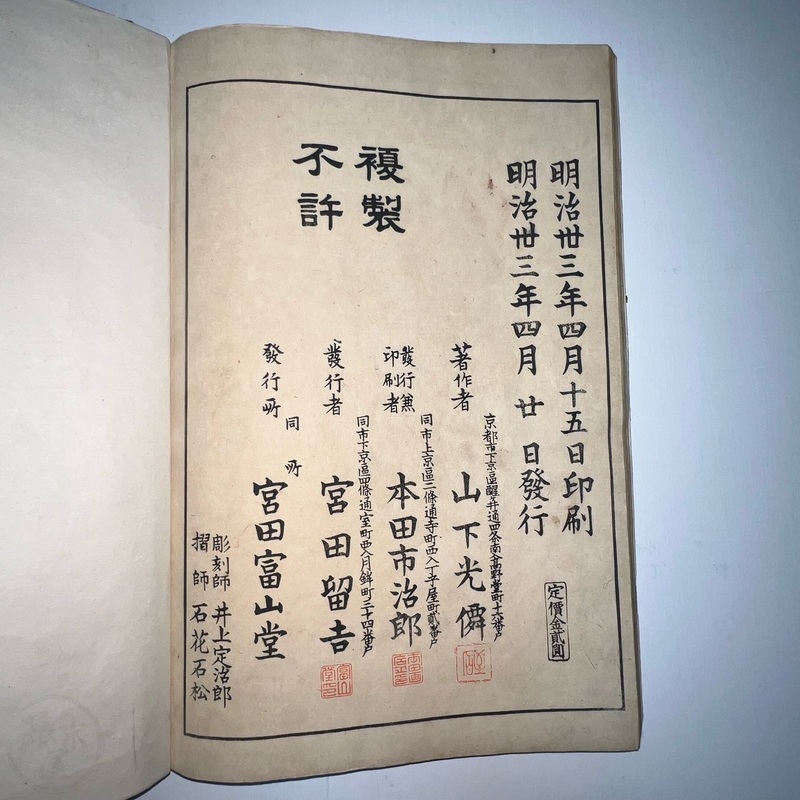 明治卅三年四月十五日印刷
明治卅三年四月廿日發行
定價金貳圓
複製
不許
京都市下京區醒ヶ井通四条南入高野堂町十六番戶
著作者 山下光僲
同市上京區二條通寺町西入丁子屋町貳番戶
發行兼
印刷者 本田市治郎
同市下京區四條通室町西入月鉾町三十四番戶
發行者 宮田留吉
同所
發行所 宮田富山堂
彫刻師 井上定治郎
摺師 石花石松